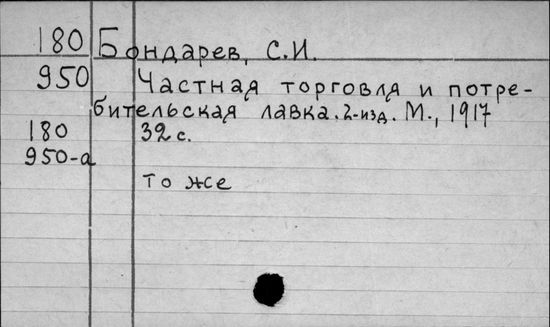 180 Бондарев, С.И.
950 Частная торговля и потре-
бительская лавка. 2-изд. М., 1917
180 32 с.
950-а
то же